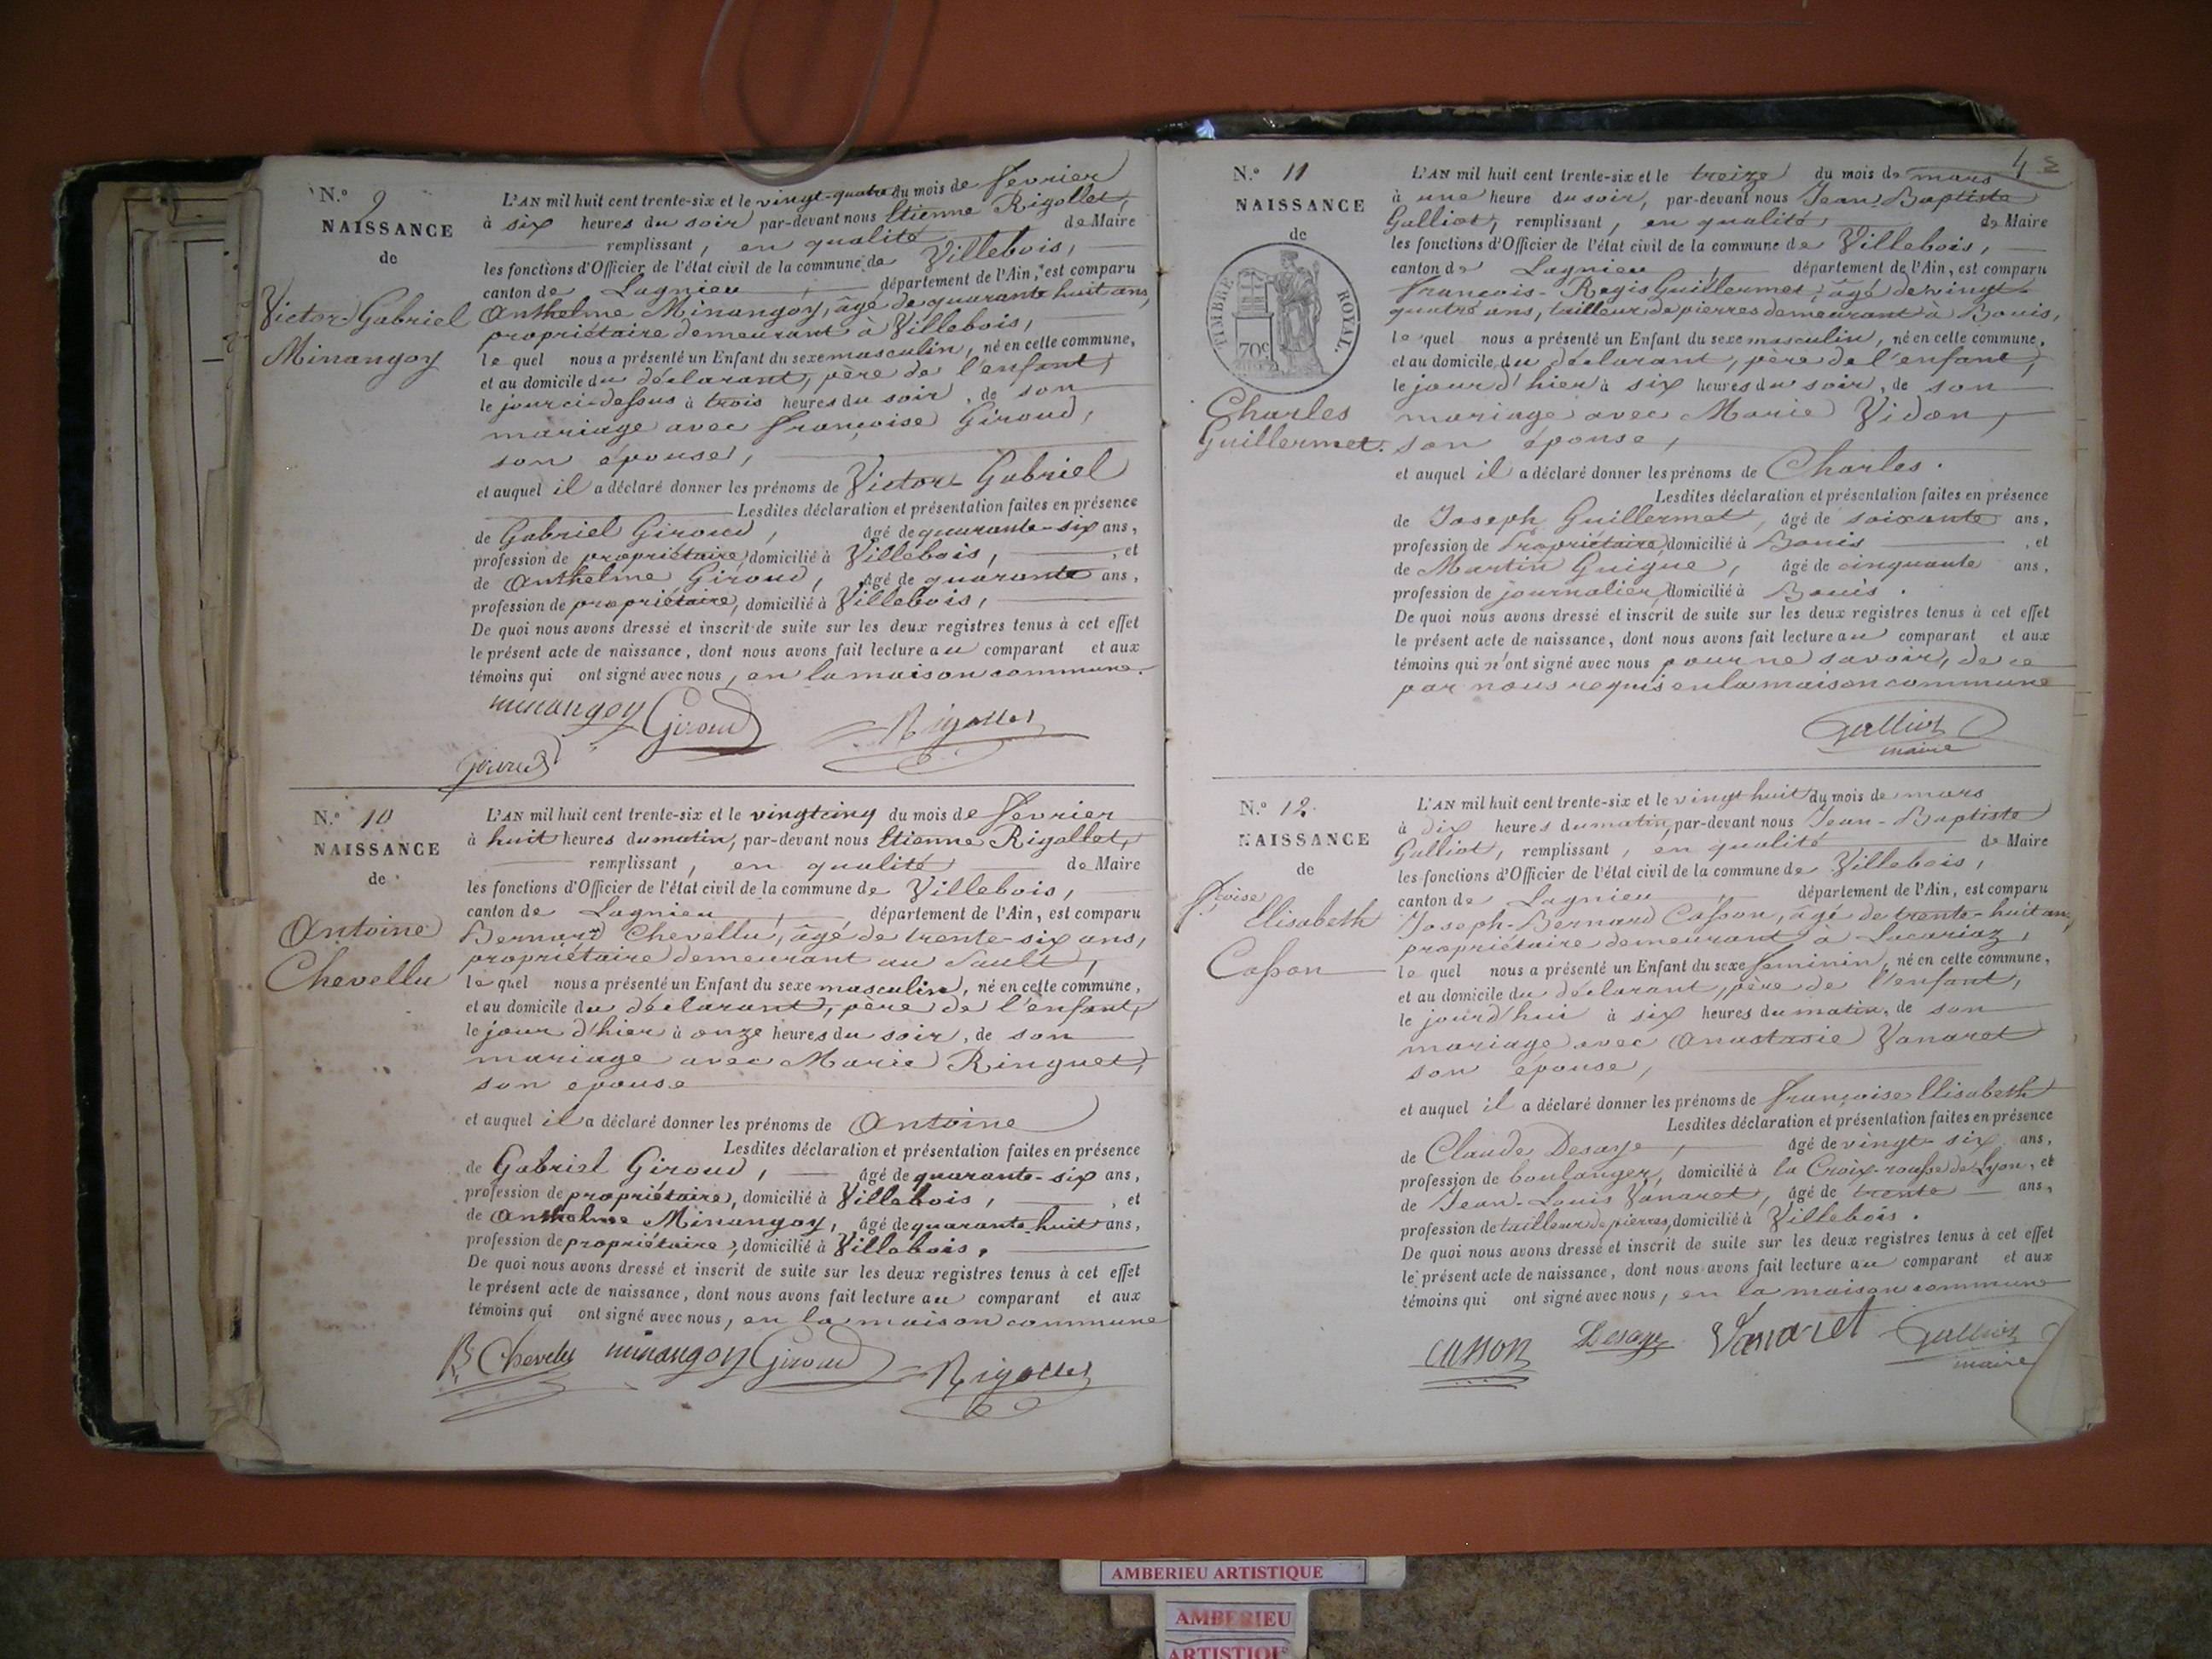 N.° 9
NAISSANCE
de
Victor-Gabriel
Minangoy
L'AN mil huit cent trente-six et le vingt-quatre du mois de février
à six heures du soir par-devant nous Etienne Rigollet,
remplissant, en qualité de Maire
les fonctions d'Officier de l'état civil de la commune de Villebois,
canton de Lagnieu, département de l'Ain, est comparu
Anthelme Minangoy, âgé de quarante huit ans,
propriétaire demeurant à Villebois,
le quel nous a présenté un Enfant du sexe masculin, né en cette commune,
et au domicile du déclarant, père de l'enfant,
le jour ci-dessus à trois heures du soir, de son
mariage avec françoise Giroud,
son épouse,
et auquel il a déclaré donner les prénoms de Victor-Gabriel
Lesdites déclaration et présentation faites en présence
de Gabriel Giroud, âgé de quarante-six ans,
profession de propriétaire, domicilié à Villebois, et
de Anthelme Giroud, âgé de quarante ans,
profession de propriétaire, domicilié à Villebois,
De quoi nous avons dressé et inscrit de suite sur les deux registres tenus à cet effet
le présent acte de naissance, dont nous avons fait lecture au comparant et aux
témoins qui ont signé avec nous, en la maison commune.
minangoy Giroud Rigollet
Giroud
N.° 10
NAISSANCE
de
Antoine
Chevellu
L'AN mil huit cent trente-six et le vingt cinq du mois de février
à huit heures du matin, par-devant nous Etienne Rigollet,
remplissant, en qualité de Maire
les fonctions d'Officier de l'état civil de la commune de Villebois,
canton de Lagnieu, département de l'Ain, est comparu
Bernard Chevellu, âgé de trente-six ans,
propriétaire demeurant au Sault,
le quel nous a présenté un Enfant du sexe masculin, né en cette commune,
et au domicile du déclarant, père de l'enfant,
le jour d'hier à onze heures du soir, de son
mariage avec Marie Ringuet,
son epouse
et auquel il a déclaré donner les prénoms de Antoine
Lesdites déclaration et présentation faites en présence
de Gabriel Giroud, âgé de quarante-six ans,
profession de propriétaire, domicilié à Villebois, et
de Anthelme Minangoy, âgé de quarante huit ans,
profession de propriétaire, domicilié à Villebois,
De quoi nous avons dressé et inscrit de suite sur les deux registres tenus à cet effet
le présent acte de naissance, dont nous avons fait lecture au comparant et aux
témoins qui ont signé avec nous, en la maison commune
B. Chevellu minangoy Giroud Rigollet
4
N.° 11
NAISSANCE
de
TIMBRE ROYAL.
70c
Charles
Guillermet.
L'AN mil huit cent trente-six et le treize du mois de mars
à une heure du soir, par-devant nous Jean-Baptiste
Galliot, remplissant, en qualité de Maire
les fonctions d'Officier de l'état civil de la commune de Villebois,
canton de Lagnieu, département de l'Ain, est comparu
François-Regis Guillermet, âgé de vingt-
quatre ans, tailleur de pierres demeurant à Bouis,
le quel nous a présenté un Enfant du sexe masculin, né en cette commune,
et au domicile du déclarant, père de l'enfant,
le jour d'hier à six heures du soir, de son
mariage avec Marie Vidon,
son épouse,
et auquel il a déclaré donner les prénoms de Charles.
Lesdites déclaration et présentation faites en présence
de Joseph Guillermet, âgé de soixante ans,
profession de Propriétaire, domicilié à Bouis, et
de Martin Guigue, âgé de cinquante ans,
profession de journalier, domicilié à Bouis.
De quoi nous avons dressé et inscrit de suite sur les deux registres tenus à cet effet
le présent acte de naissance, dont nous avons fait lecture au comparant et aux
témoins qui n'ont signé avec nous pour ne savoir, de ce
par nous requis en la maison commune
Galliot
maire
N.° 12.
NAISSANCE
de
fçoise
Elisabeth
Casson
L'AN mil huit cent trente-six et le vingt huit du mois de mars
à dix heures du matin, par-devant nous Jean-Baptiste
Galliot, remplissant, en qualité de Maire
les fonctions d'Officier de l'état civil de la commune de Villebois,
canton de Lagnieu, département de l'Ain, est comparu
Joseph-Bernard Casson, âgé de trente-huit ans,
propriétaire demeurant à Lacariaz,
le quel nous a présenté un Enfant du sexe féminin, né en cette commune,
et au domicile du déclarant, père de l'enfant,
le jourd'hui à six heures du matin, de son
mariage avec Anastasie Vanaret
son épouse,
et auquel il a déclaré donner les prénoms de françoise Elisabeth
Lesdites déclaration et présentation faites en présence
de Claude Desaye, âgé de vingt-six ans,
profession de boulanger, domicilié à la Croix-rousse de Lyon, et
de Jean-Louis Vanaret, âgé de trente ans,
profession de tailleur de pierres, domicilié à Villebois.
De quoi nous avons dressé et inscrit de suite sur les deux registres tenus à cet effet
le présent acte de naissance, dont nous avons fait lecture au comparant et aux
témoins qui ont signé avec nous, en la maison commune
casson Desaye Vanaret Galliot
maire
AMBERIEU ARTISTIQUE
AMBERIEU
ARTISTIQUE